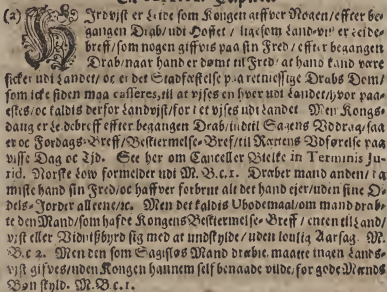 (2) Hirdvist er Leide som Kongen geffver Nogen/ effter be-
gangen Drab/ udi Hoffet / ligesom Landvist er Leide-
breff/ som nogen giffvis paa sin Fred / effter begangen
Drab/ naar hand er dømt til Fred/ at hand kand være
sicker udi Landet/ oc er det Stadfæstelse paa retmessige Drabs Dom/
som icke siden maa casseres, til at vjses en hver udi Landet/ hvor paa-
eskes/ oc kaldis derfor Landvjst/ for det vjses udi Landet. Men Kongs-
daug er Ledebreff effter begangen Drab/ indtil Sagens Uddrag/ saa
er oc Fordags-Breff/ Bestiermelse-Bref/ til Rættens Udførelse paa
visse Dag oc Tid. See her om Canceller Bielke in Terminis Ju-
rid. Norske Low formelder udi M. B. c. 1. Dræber mand anden/ da
miste hand sin Fred/ oc haffver forbrut alt det hand ejer/ uden sine O-
dels-Jorder alleene/ &c. Men det kaldis Ubodemaal/ om mand dræb-
te den Mand/ som hafde Kongens Bestiermelse-Breff / enten til Land-
vjst eller Vidnitzbyrd sig med at undskylde/ uden louflig Aarsag. M.
B. c 2. Men den som Sagisløs Mand dræbte, maatte ingen Lands-
vjst gifves/ uden Kongen hannem self benaade vilde/ for gode Mænds
Bøn skyld. M. B. c. 1.